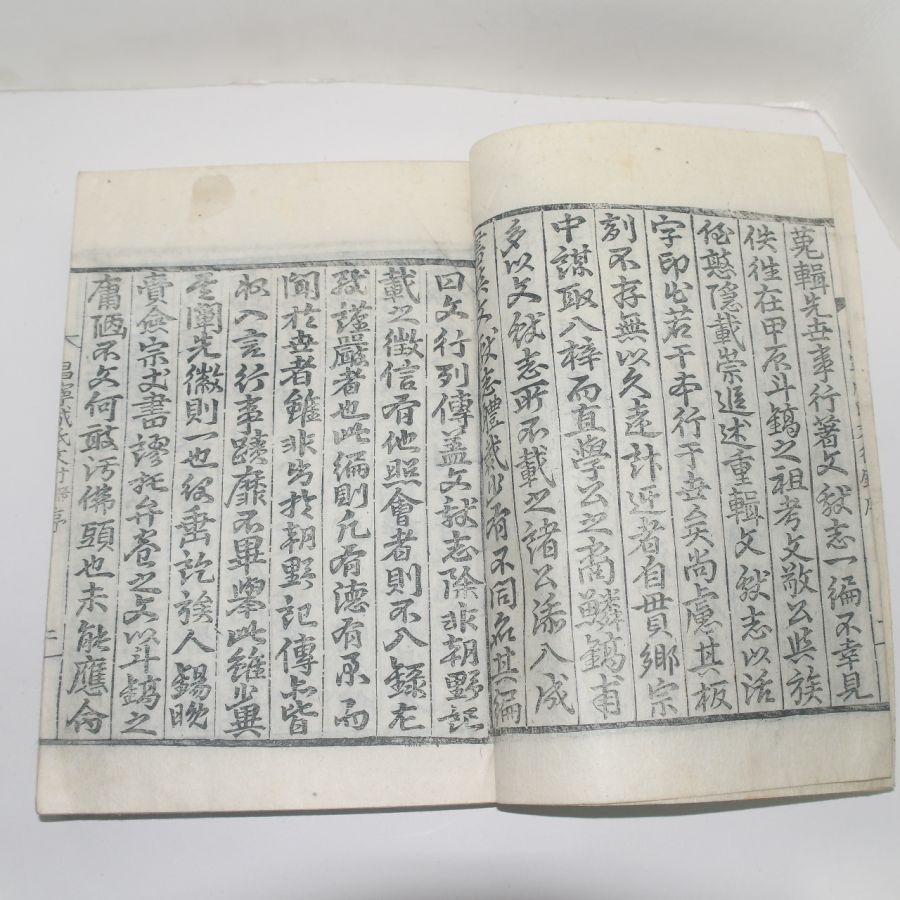 蒐輯先世事行著文獻志一編不幸見
佚徃在甲辰斗鎬之祖考文敬公與族
侄憨隱載崇追述重輯文獻志以活
字印出若干本行于世矣尚慮其板
刻不存無以久遠計近者自貫鄉宗
中謀取入梓而直學公之裔鱗鎬甫
多以文獻志所不載之諸公添入成
文獻志體裁有不同名其編
曰文行列傳盖文獻志除非朝野記
載之徵信有他照會者則不入錄尤
致謹嚴者也此編則凡有德有杲而
聞於世者雖非出於朝野記傳亦皆
收入言行事蹟靡不畢擧此雖少異
乎闡先徽則一也役垂訖族人錫晩
賫僉宗丈書謬托弁卷之文以斗鎬之
庸陋不文何敢汚佛頭也未能應命
昌寧成氏文行 序
二